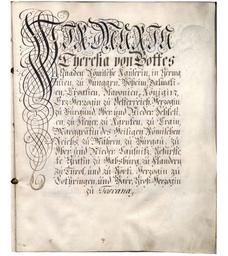 Wir Maria
Theresia von Gottes
Gnaden Römische Kaiserin, in Germa
nien, zu Hungarn, Böheim, Dalmati-
en, Croatien, Slavonien, Königin,
Erz-Herzogin zu Oesterreich, Herzogin
zu Burgund, Ober und Nieder Schlesi-
en, zu Steyer, zu Kärnten, zu Crain,
Marggräfin des Heiligen Römischen
Reichs, zu Mähren, zu Burgau, zu
Ober und Nieder Lausnitz, Gefürste-
te Gräfin zu Habspurg, zu Flandern,
zu Tyrol, und zu Görtz, Herzogin zu
Lothringen, und Baar, Groß-Herzogin
zu Toscana,